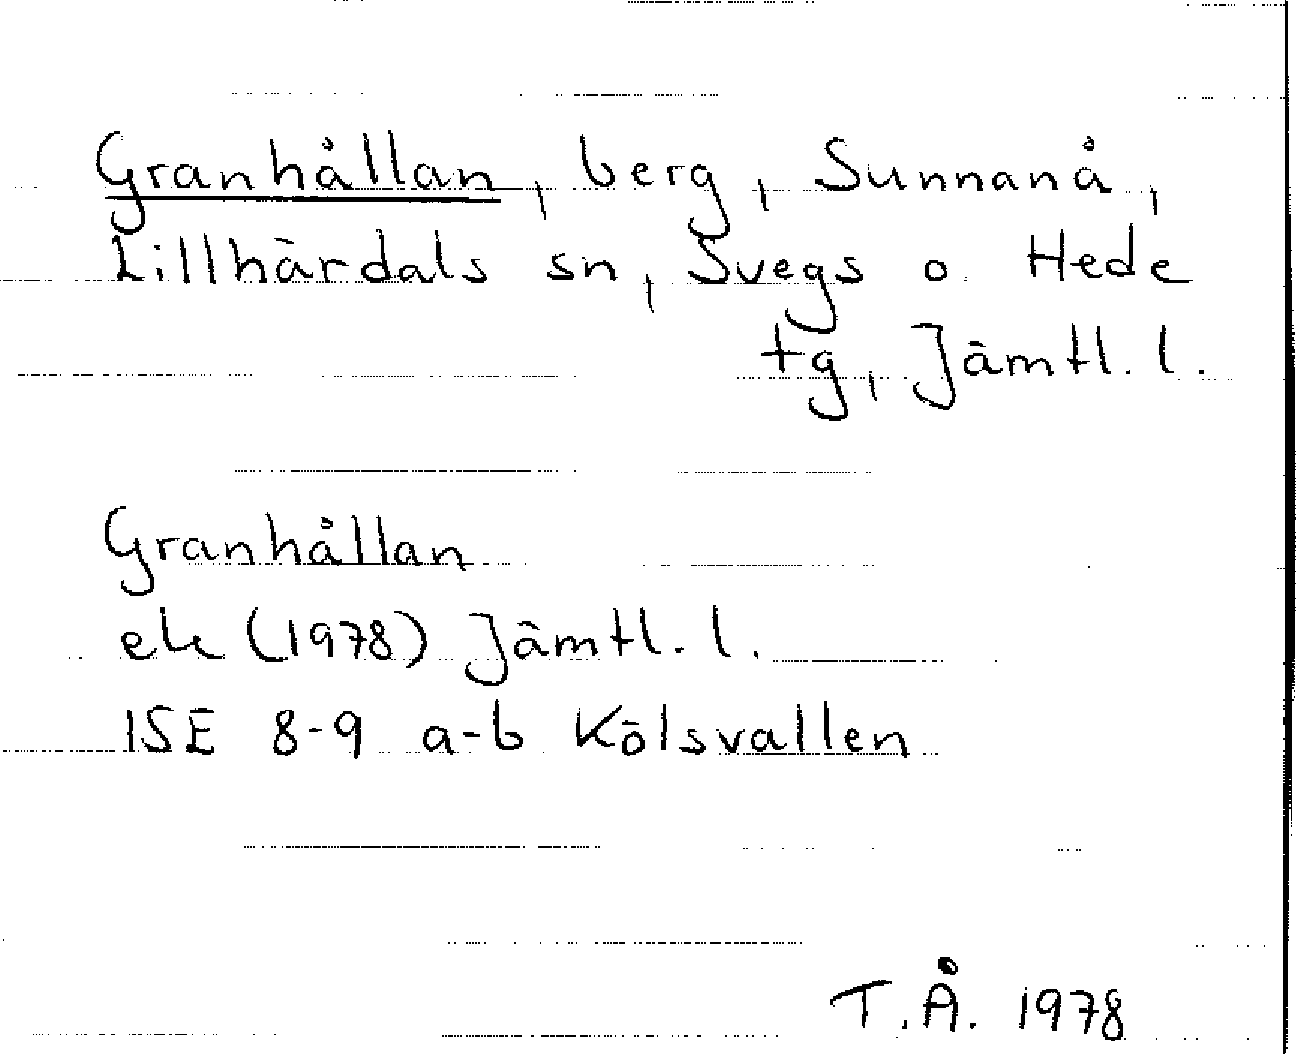 Granhållan, berg, Sunnanå,
Lillhärdals sn, Svegs o. Hede
tg, Jämtl. l.
Granhållan
ek (1978) Jämtl. l.
15E 8-9 a-b Kölsvallen
T.Å. 1978